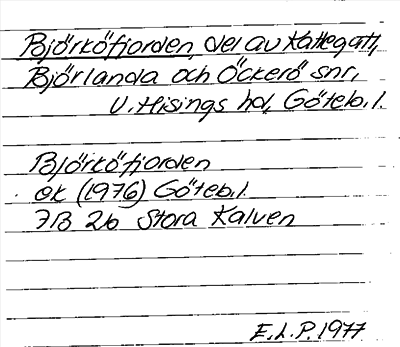 Björköfjorden, del av Kattegatt,
Björlanda och Öckerö snr,
V. Hisings hd, Göteb. l.
Björköfjorden
ek (1976) Göteb. l.
7B 2b Stora Kalven
E.L.P. 1977